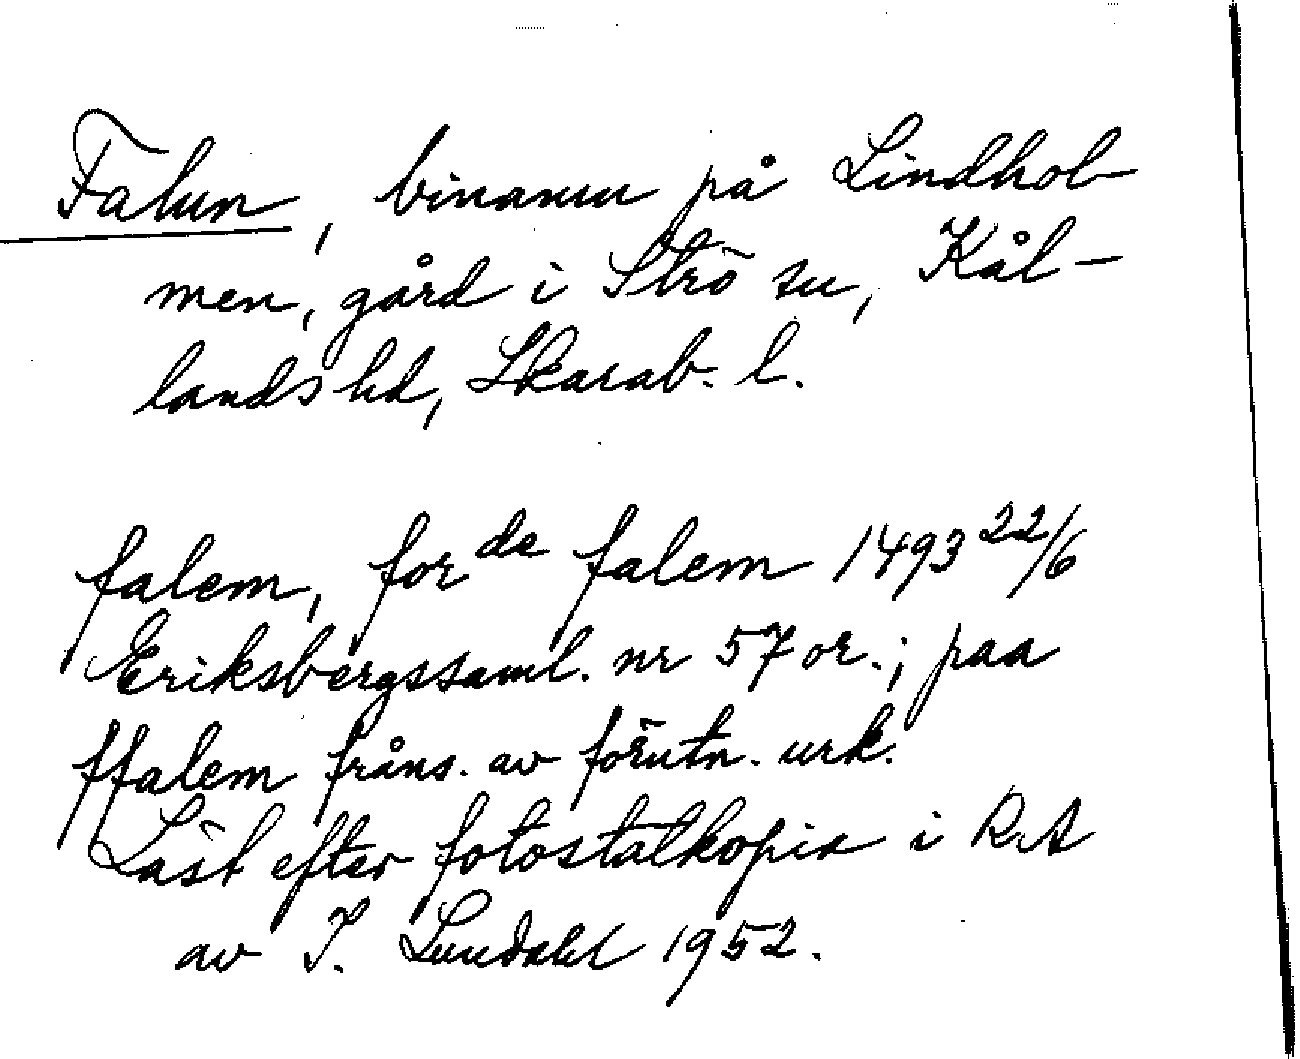 Falun, binamn på Lindhol-
men, gård i Strö sn, Kål-
lands hd, Skarab. l.
falem, for de falem 1493 22/6
Eriksbergssaml. nr 57 or.; paa
ffalem fråns. av förutn. urk.
Läst efter fotostatkopia i RA
av I. Lundahl 1952.